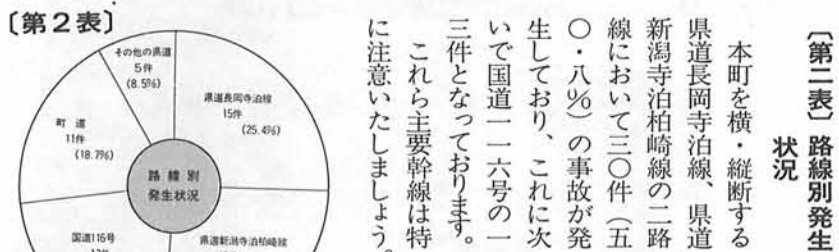 〔第二表〕路線別発生
状況
本町を横・縦断する
県道長岡寺泊線、県道
新潟寺泊柏崎線の二路
線において三〇件（五
〇・八％）の事故が発
生しており、これに次
いで国道一一六号の一
三件となっております。
これら主要幹線は特
に注意いたしましょう。
〔第２表〕
その他の県道
5件
(8.5%)
県道長岡寺泊線
15件
(25.4%)
町道
11件
(18.7%)
路線別
発生状況
国道116号
県道新潟寺泊柏崎線